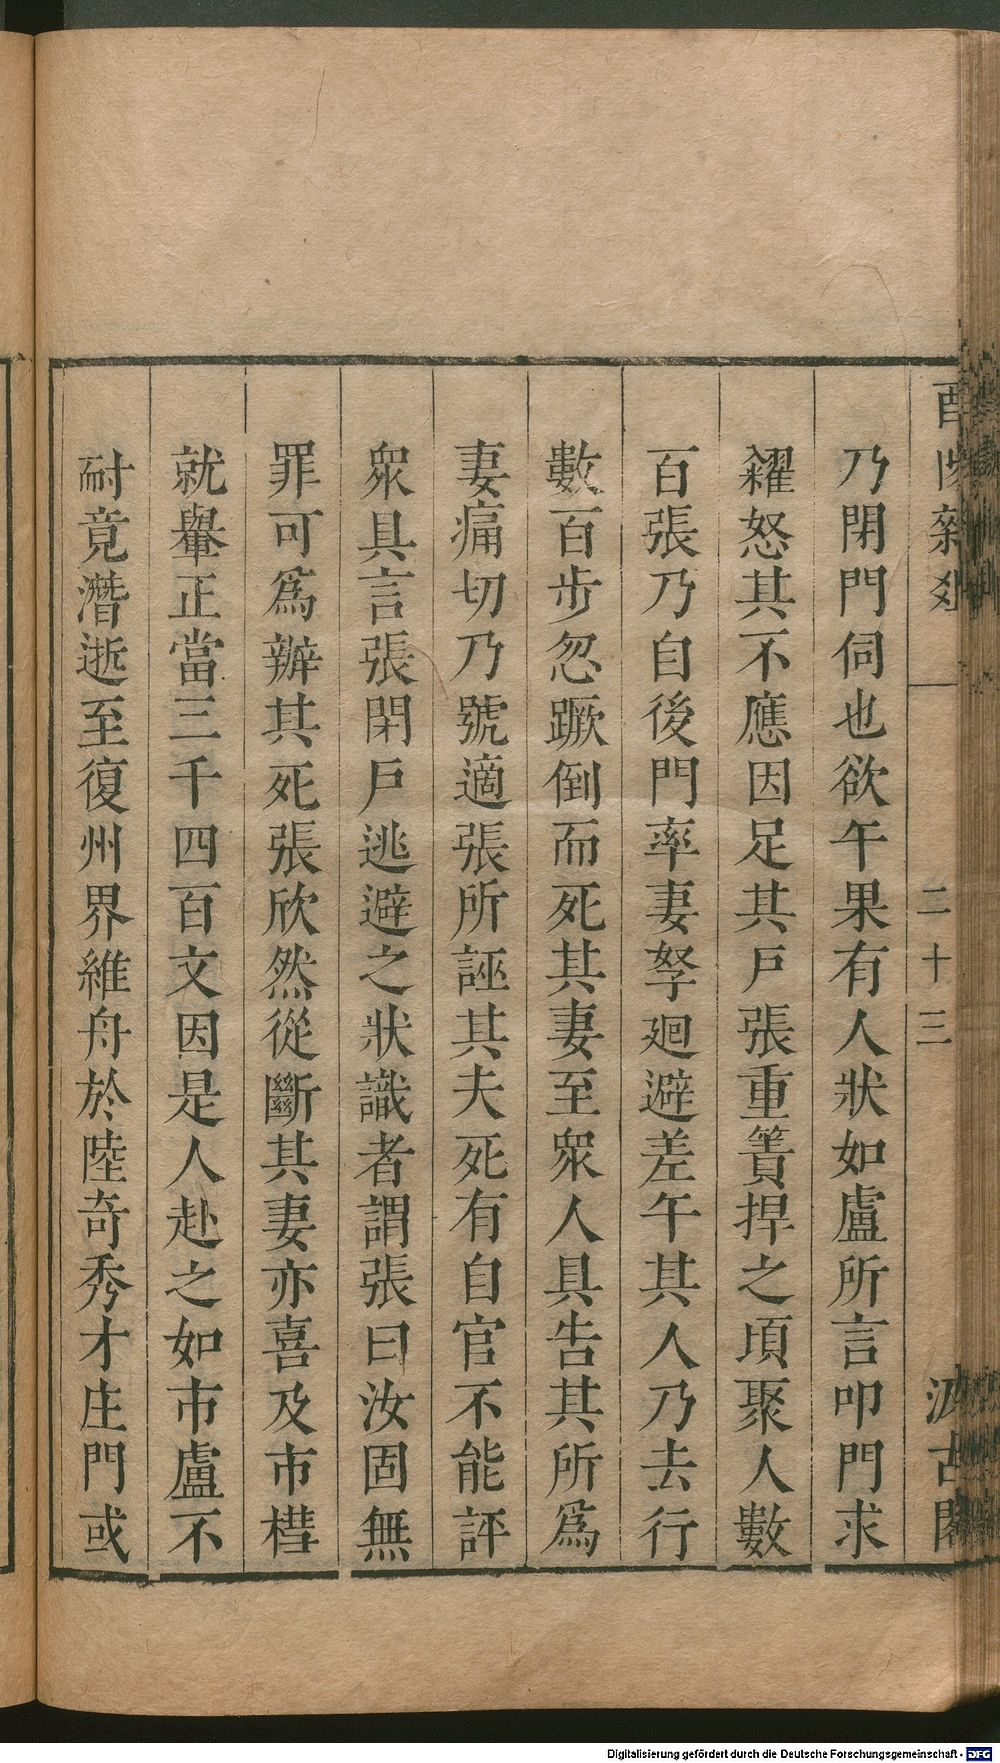 酉陽雜俎
二十三
汲古閣
乃閉門伺也欲午果有人狀如盧所言叩門求
糴怒其不應因足其戶張重簣捍之頃聚人數
百張乃自後門率妻孥廻避差午其人乃去行
數百步忽蹶倒而死其妻至衆人具告其所爲
妻痛切乃號適張所誣其夫死有自官不能評
衆具言張閉戶逃避之狀識者謂張曰汝固無
罪可爲辦其死張欣然從斷其妻亦喜及市槥
就轝正當三千四百文因是人赴之如市盧不
耐竟潛逝至復州界維舟於陸奇秀才庄門或
Digitalisierung gefördert durch die Deutsche Forschungsgemeinschaft - DFG